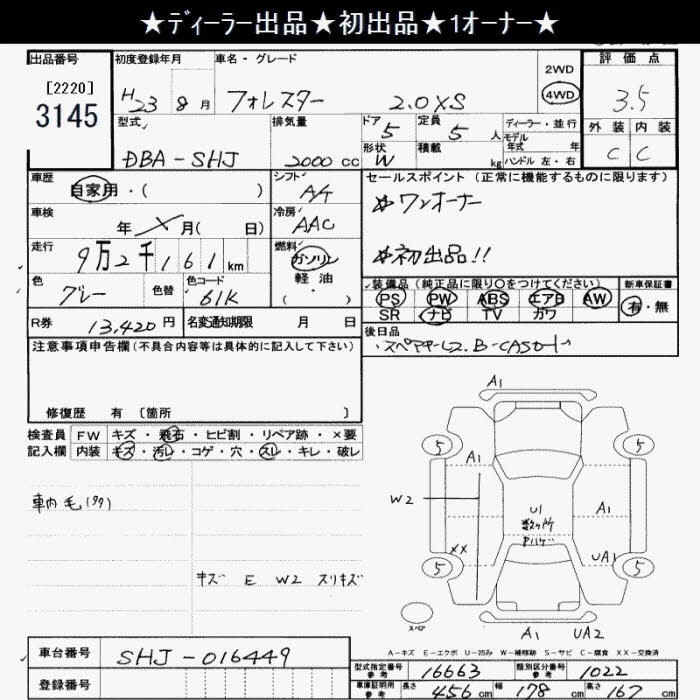 ★ディーラー出品★初出品★1オーナー★
出品番号
[2220]
3145
初度登録年月
H23 8月
車名・グレード
フォレスター 2.0XS
2WD
4WD
評価点
3.5
外装 内装
C C
型式
DBA-SHJ
排気量
2000 cc
ドア 5
形状 W
定員 5 人
積載 kg
ディーラー・並行
モデル年式 年
ハンドル 左・右
車歴
自家用・( )
シフト
A/T
セールスポイント (正常に機能するものに限ります)
☆ワンオーナー
☆初出品!!
車検
年 月( 日)
冷房
AAC
走行
9万2千161km
燃料
ガソリン
軽油
( ・ )
色
グレー
色替
色コード
61K
装備品(純正品に限り○をつけてください)
PS PW ABS エアB AW
SR ナビ TV カワ
新車保証書
有・無
R券 13,420円
名変通知期限 月 日
後日品
注意事項申告欄(不具合内容等は具体的に記入して下さい)
修復歴 有 [箇所 ]
検査員記入欄
FW キズ・飛石・ヒビ割・リペア跡・×要
内装 キズ・汚レ・コゲ・穴・スレ・キレ・破レ
車内毛
キズ E W2 スリキズ
A1
5 5
A1
W2
U1
数ヶ所
A1
XX
UA1
5 5
スペア
A1 UA2
A-キズ E-エクボ U-凹み W-補修跡 S-サビ C-腐食 XX-交換済
車台番号 SHJ-016449
登録番号
型式指定番号 参考 16663
類別区分番号 参考 1022
車庫証明用 参考 長さ 456cm 幅 178cm 高さ 167cm